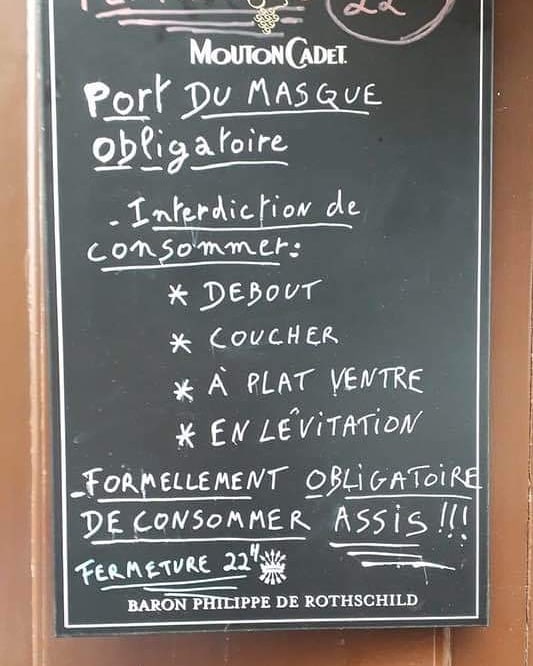 22
MOUTON CADET.
Port DU MASQUE
obligatoire
- Interdiction de
consommer:
* DEBOUT
* COUCHER
* À PLAT VENTRE
* EN LÊVITATION
- FORMELLEMENT OBLIGATOIRE
DE CONSOMMER ASSIS !!!
FERMETURE 22H
BARON PHILIPPE DE ROTHSCHILD